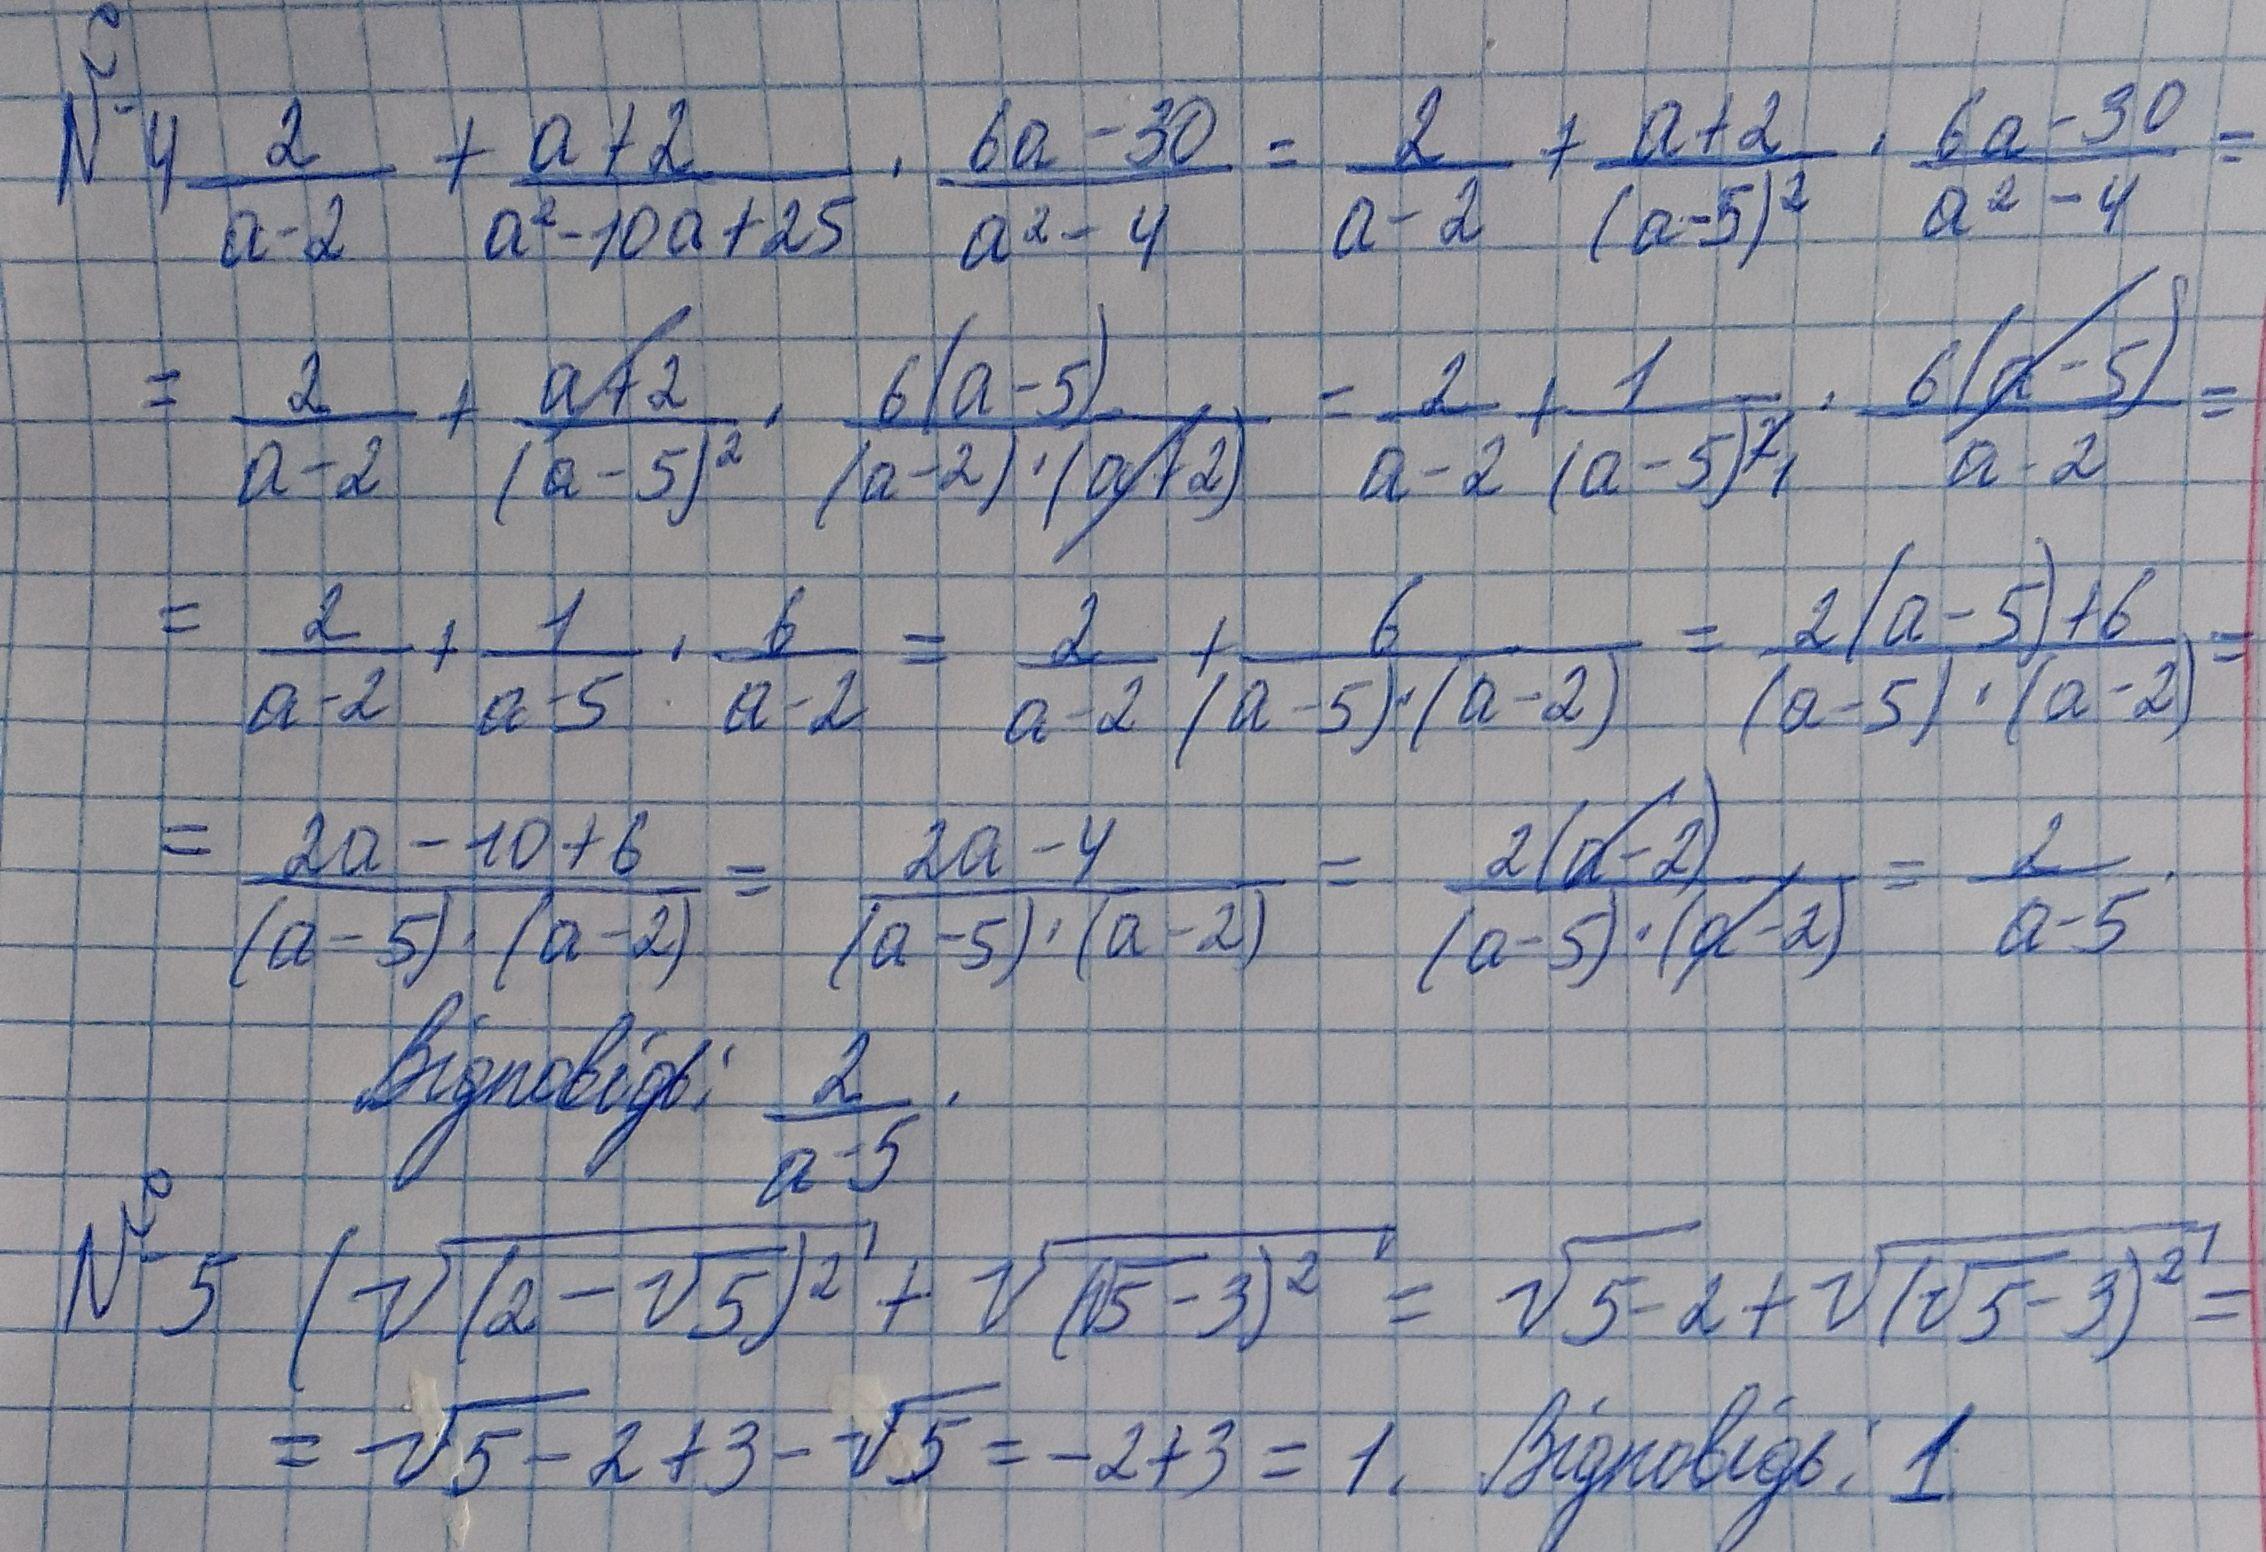 №4 2/(a-2) + (a+2)/(a²-10a+25) · (6a-30)/(a²-4) = 2/(a-2) + (a+2)/(a-5)² · (6a-30)/(a²-4) =
= 2/(a-2) + (a+2)/(a-5)² · 6(a-5)/((a-2)·(a+2)) = 2/(a-2) + 1/(a-5)²₁ · 6(a-5)/(a-2) =
= 2/(a-2) + 1/(a-5) · 6/(a-2) = 2/(a-2) + 6/((a-5)·(a-2)) = (2(a-5)+6)/((a-5)·(a-2)) =
= (2a-10+6)/((a-5)·(a-2)) = (2a-4)/((a-5)·(a-2)) = 2(a-2)/((a-5)·(a-2)) = 2/(a-5).
Відповідь: 2/(a-5).
№5 (√((2-√5)²) + √((√5-3)²) = √5-2+√((√5-3)²) =
= √5-2+3-√5 = -2+3 = 1. Відповідь: 1.